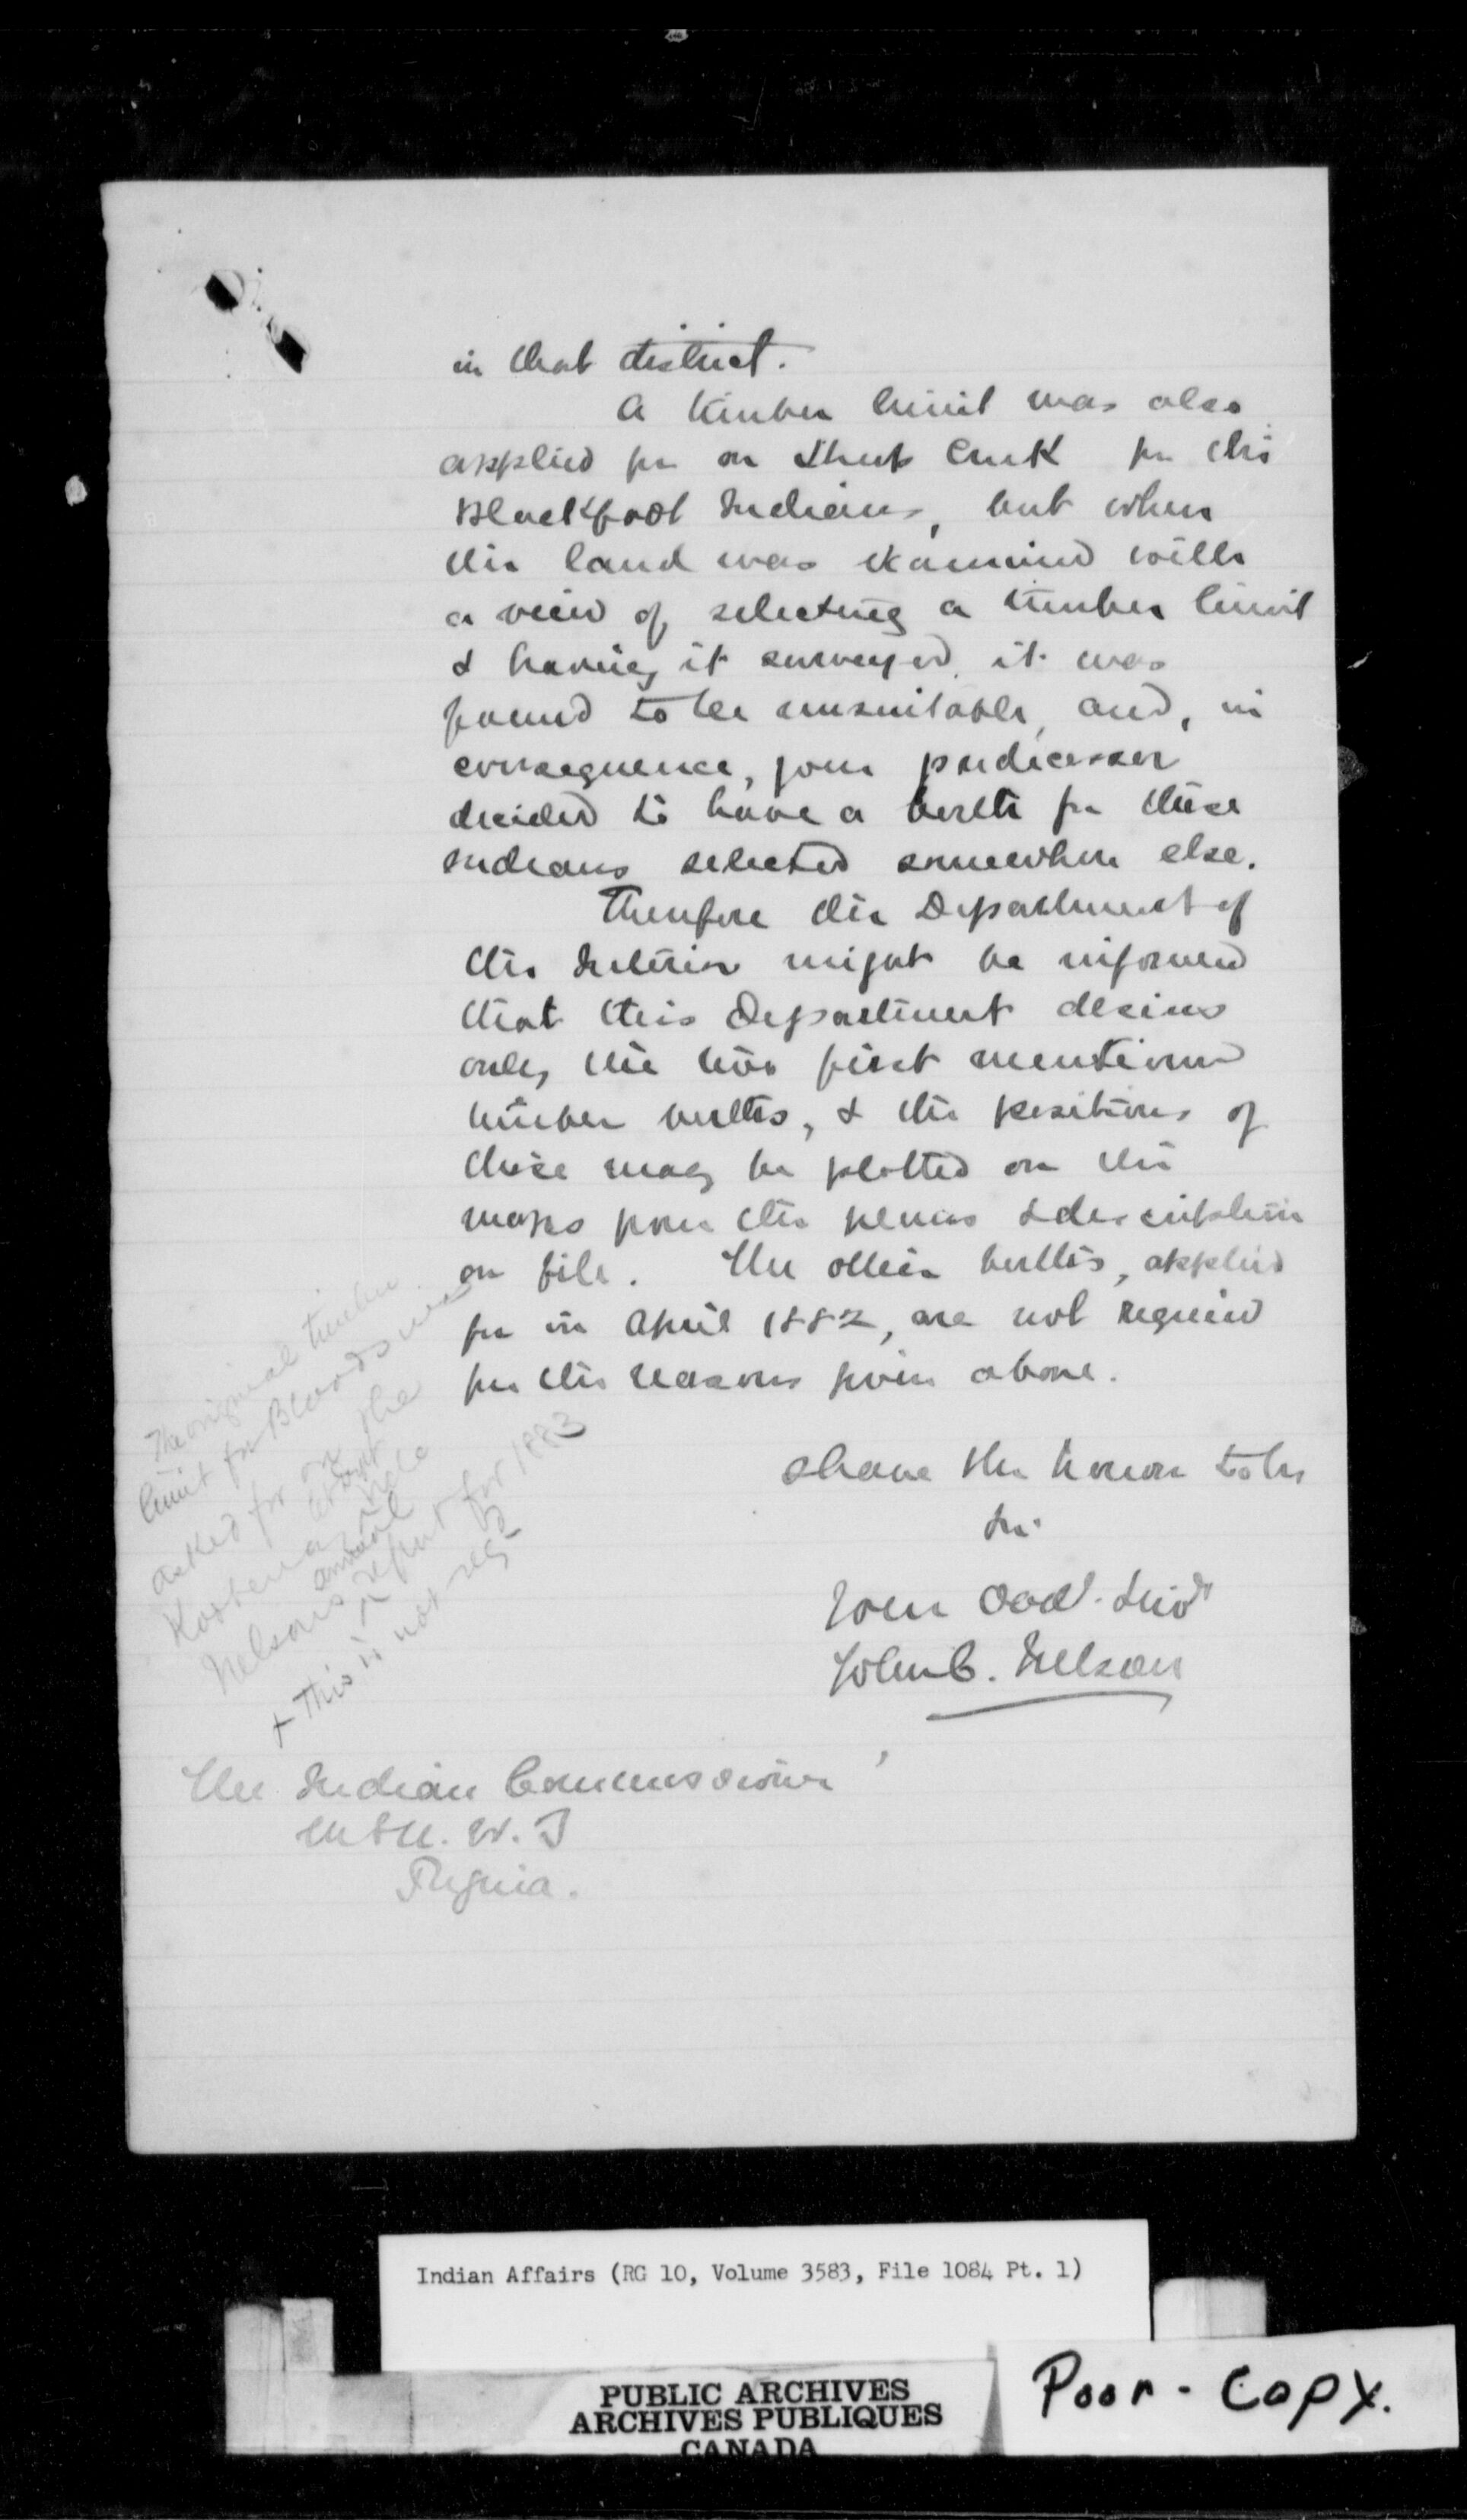 in that district.
A timber limit was also
applied for on Sheep Creek for the
Blackfoot Indians, but when
the land was examined with
a view of selecting a timber limit
& having it surveyed, it was
found to be unsuitable, and, in
consequence, your predecessor
decided to have a berth for these
Indians selected somewhere else.
Therefore the Department of
the Interior might be informed
that this Department desires
only the two first mentioned
timber berths, & the positions of
these may be plotted on the
maps from the plans & description
on file. The other berths, applied
for in April 1882, are not required
for the reasons given above.
I have the honor to be
Sir
Your Obdt. Servt
John C. Nelson
The original timber
limit for Bloods
asked for on the
Kootenai
Nelsons annual report for 1883
x This is not reqd
The Indian Commissioner
M & N. W. T
Regina.
Indian Affairs (RG 10, Volume 3583, File 1084 Pt. 1)
PUBLIC ARCHIVES
ARCHIVES PUBLIQUES
CANADA
Poor - Copy.